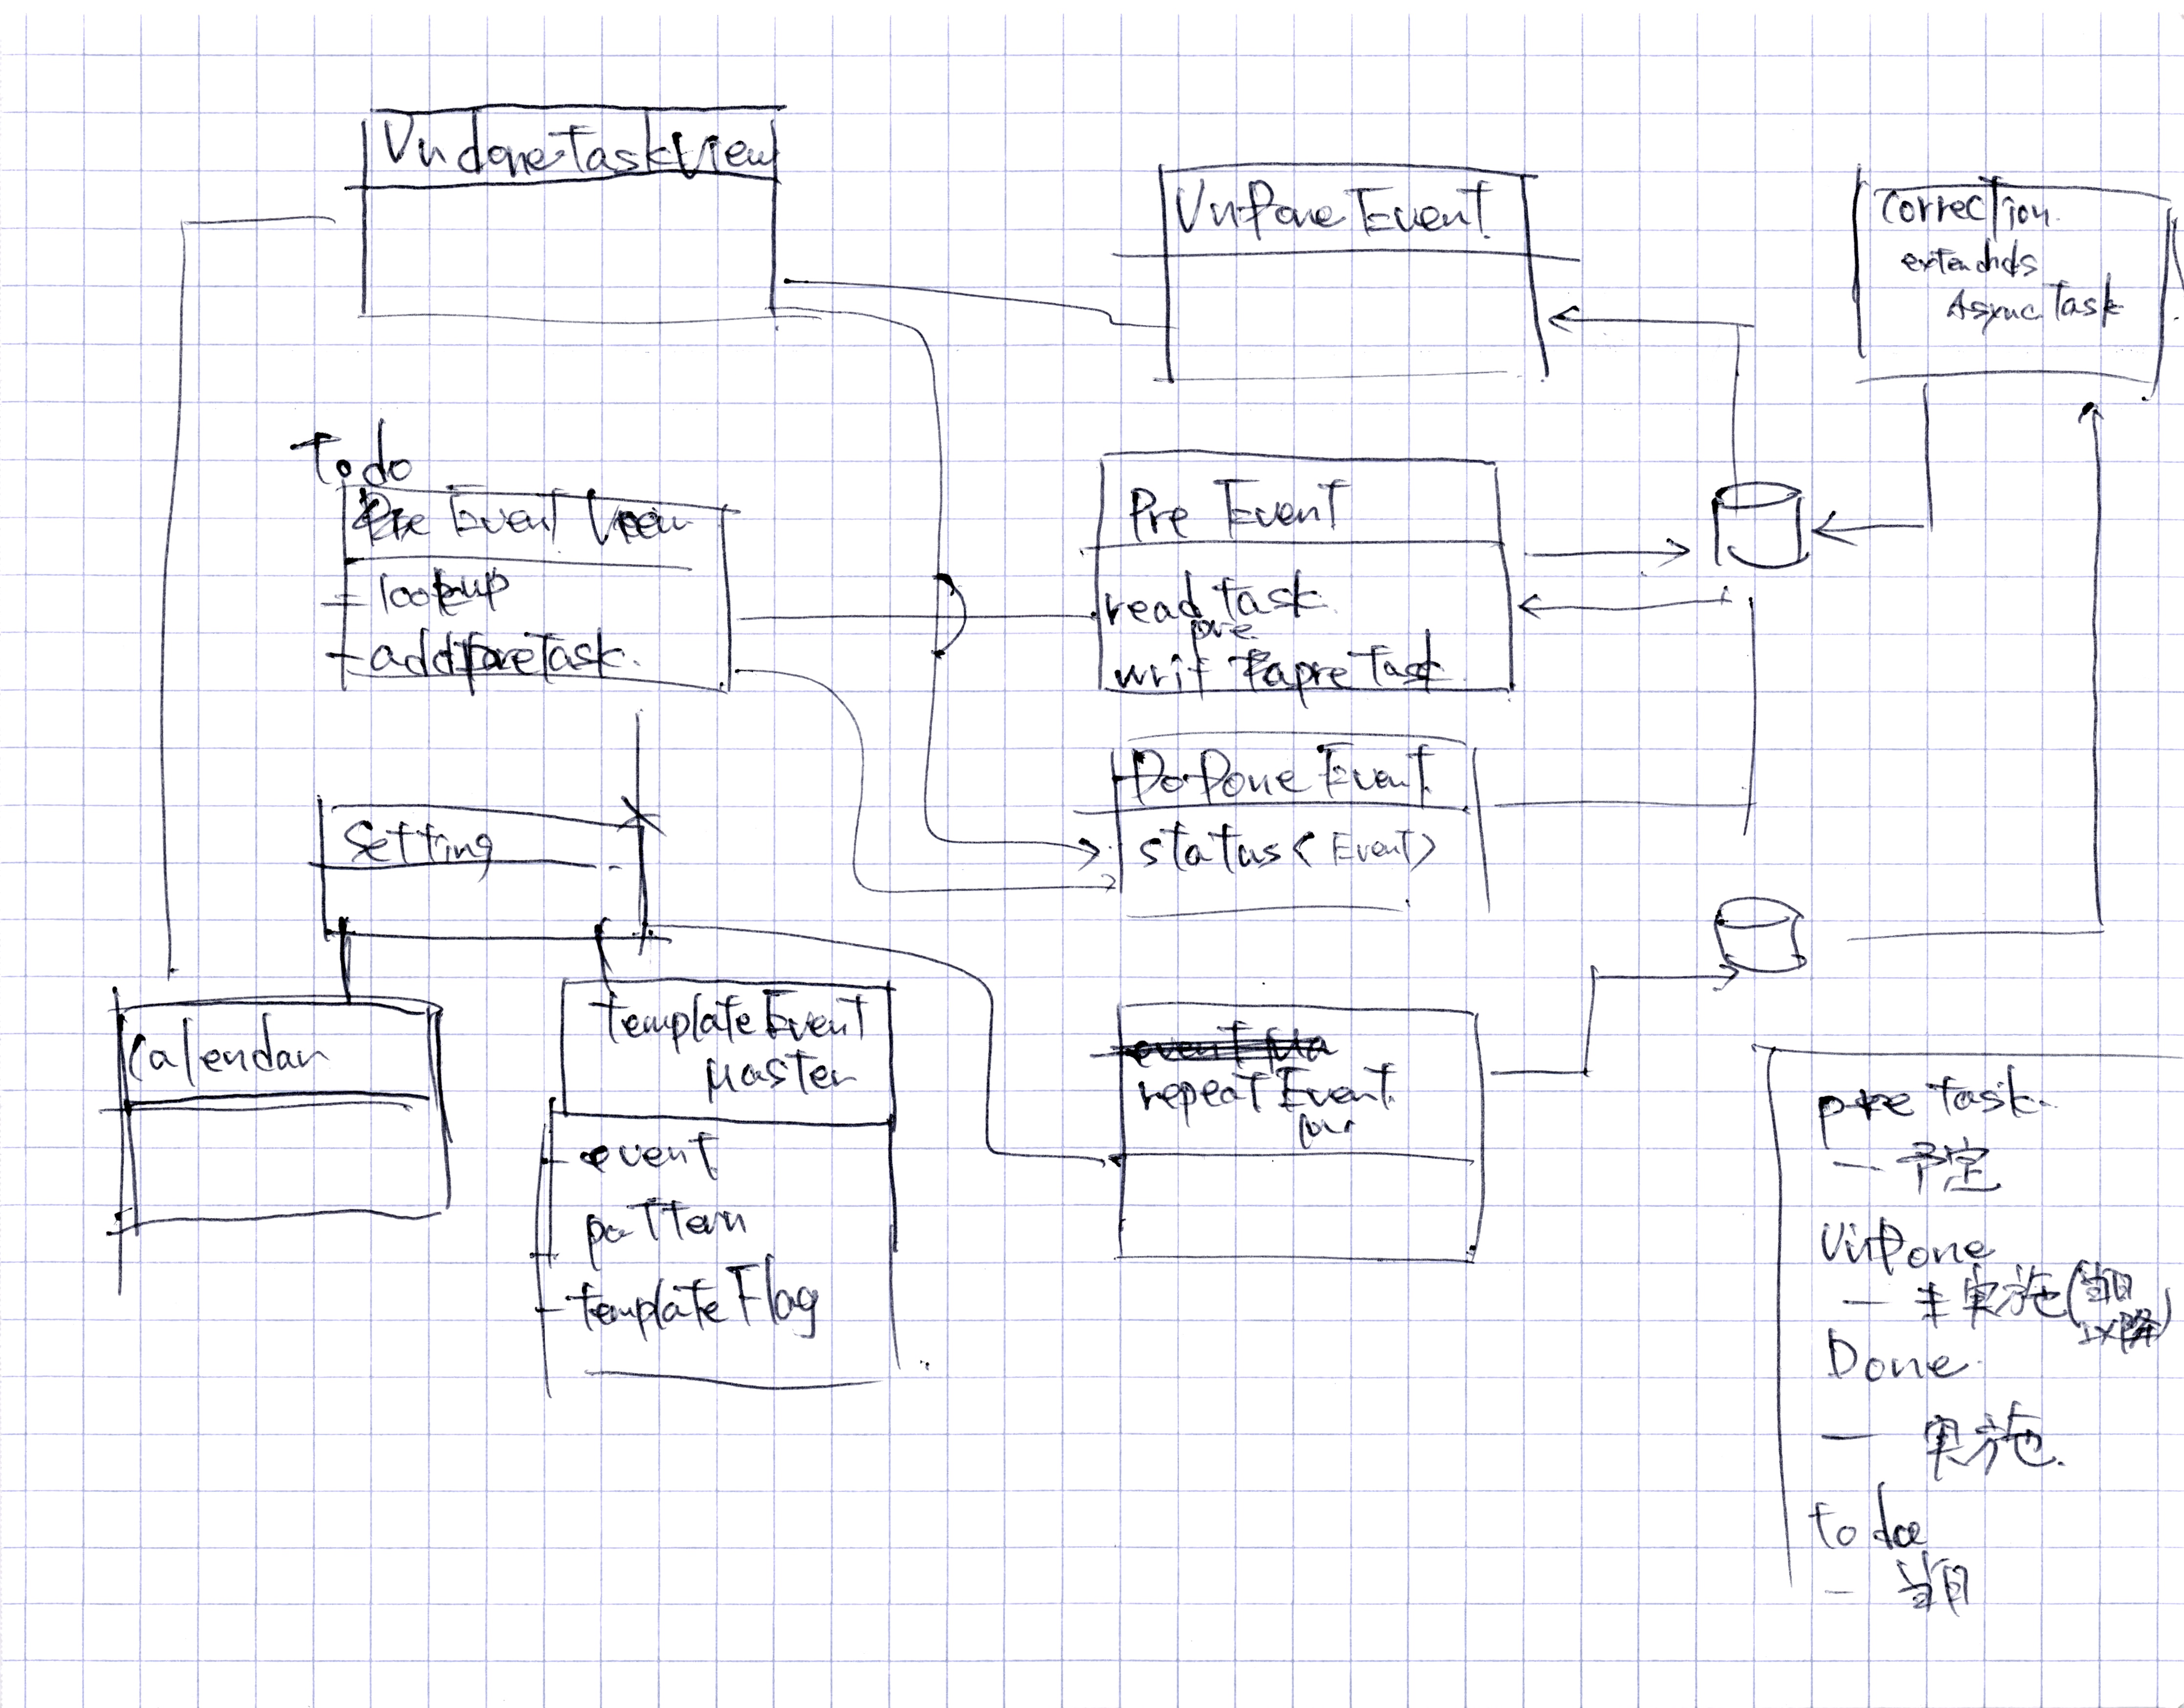 UndoneTaskView
UnDone Event
Correction
extends
AsyncTask
Todo
Pre Event View
- lookup
- addpreTask
Pre Event
read Task
pre
writ preTask
DoDone Event
status < Event >
Setting
Calendar
template Event
Master
- event
pattern
- template Flag
repeat Event
pre Task
- 予定
UnDone
- 未実施(当日
以降)
Done
- 実施
to do
- 当日